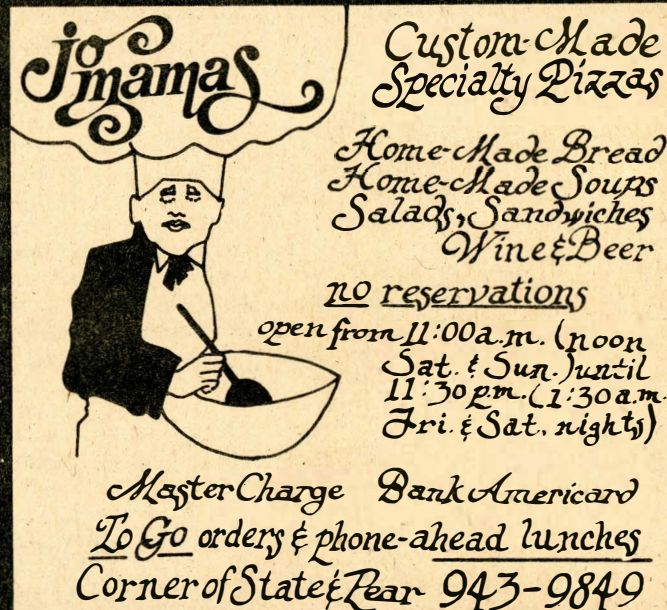 jo
mamas
Custom-Made
Specialty Pizzas
Home-Made Bread
Home-Made Soups
Salads, Sandwiches
Wine & Beer
no reservations
open from 11:00 a.m. (noon
Sat. & Sun.) until
11:30 p.m. (1:30 a.m.
Fri. & Sat. nights)
Master Charge BankAmericard
To Go orders & phone-ahead lunches
Corner of State & Pear 943-9849